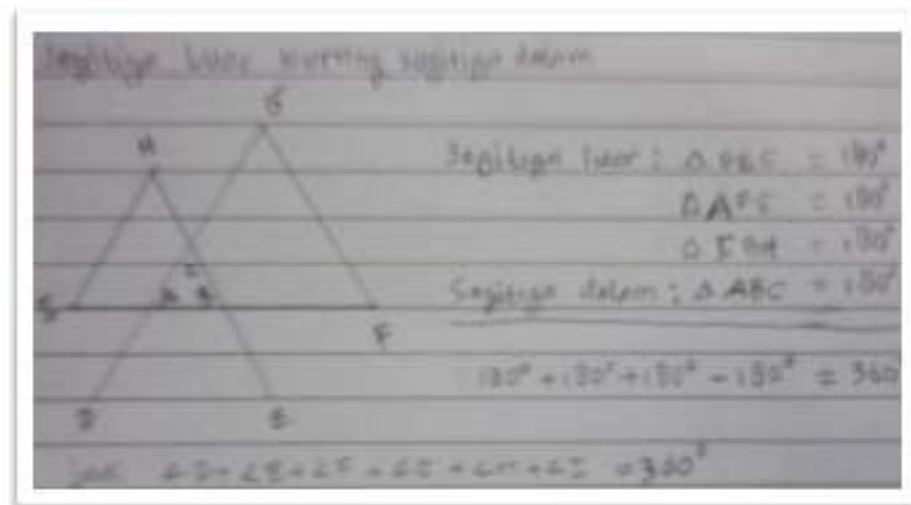 Segitiga luar kurang segitiga dalam
G
H
Segitiga luar : Δ DEC = 180°
Δ AFG = 180°
Δ IBH = 180°
C
A B
I
F
Segitiga dalam : Δ ABC = 180°
180° + 180° + 180° - 180° = 360
D E
∠D + ∠E + ∠F + ∠G + ∠H + ∠I = 360°